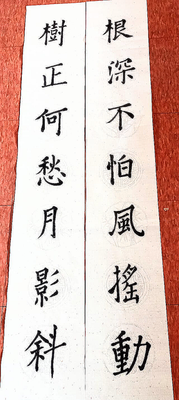 根深不怕風搖動
樹正何愁月影斜